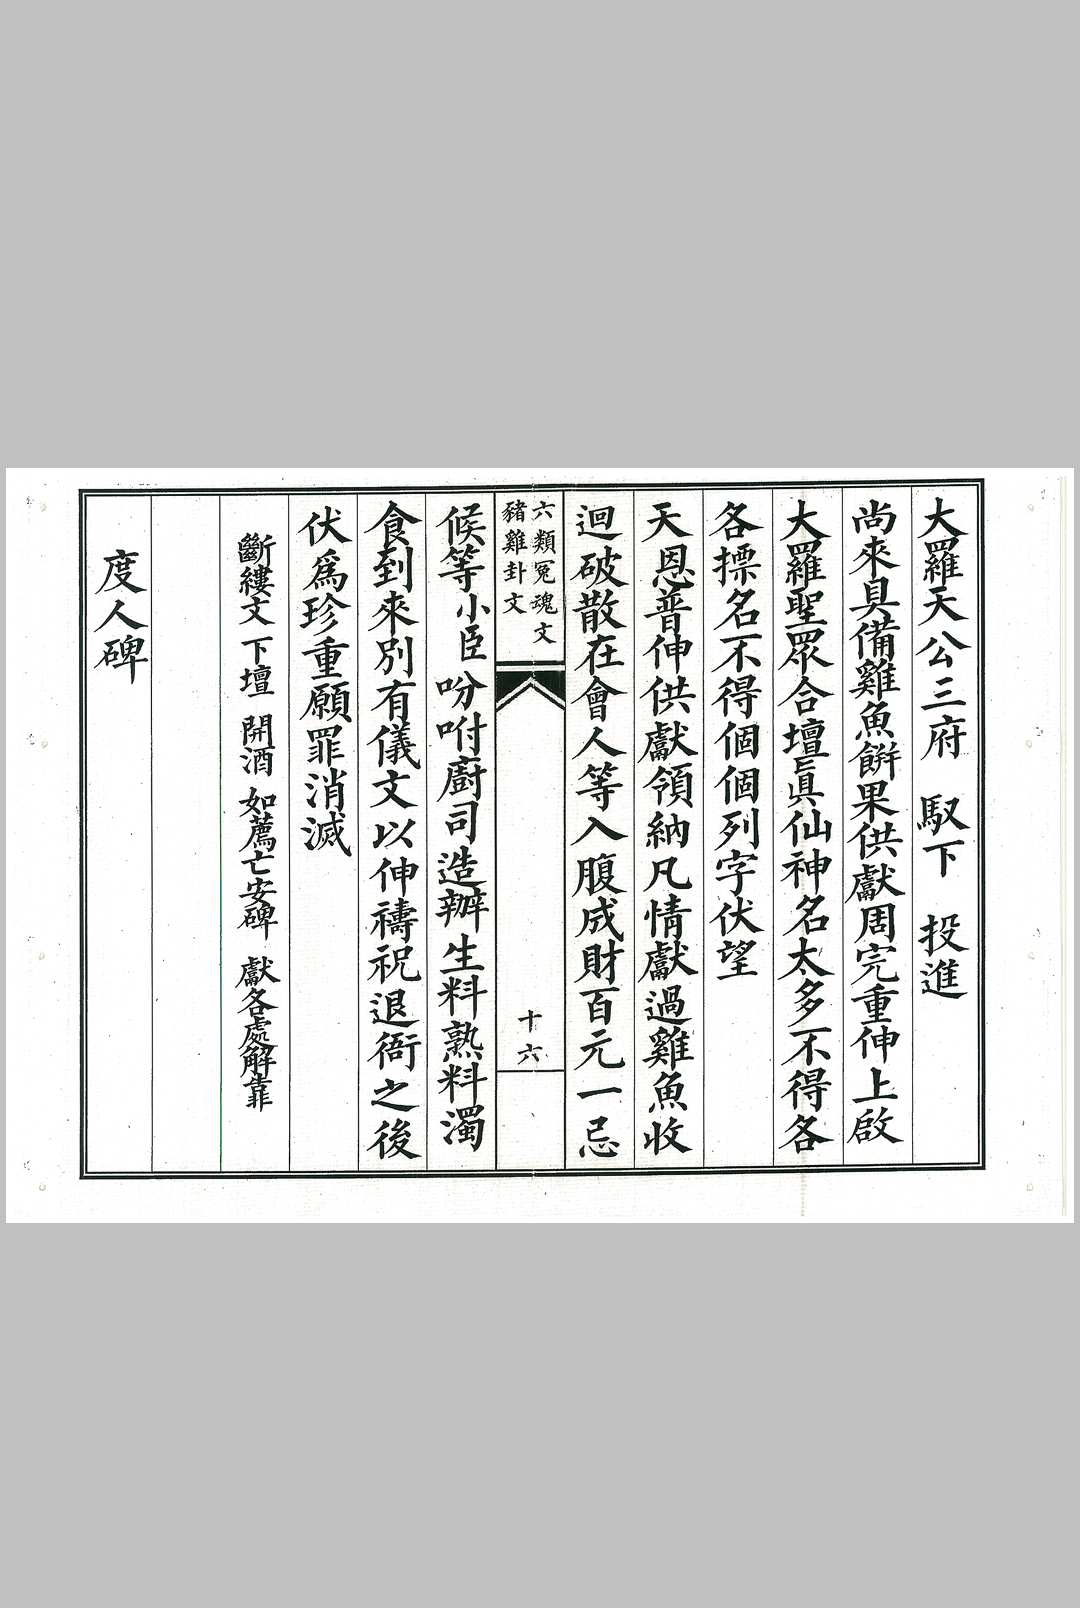 大羅天公三府　馭下　投進
尚來具備雞魚餅果供獻周完重伸上啟
大羅聖眾合壇眞仙神名太多不得各
各摽名不得個個列字伏望
天恩普伸供獻領納凡情獻過雞魚收
迴破散在會人等入腹成財百元一忌
六類冤魂文
豬雞卦文
十六
候等小臣吩咐廚司造辦生料熟料濁
食到來別有儀文以伸禱祝退衙之後
伏爲珍重願罪消滅
斷縷文　下壇　開酒　如薦亡安碑　獻各處解靠
度人碑